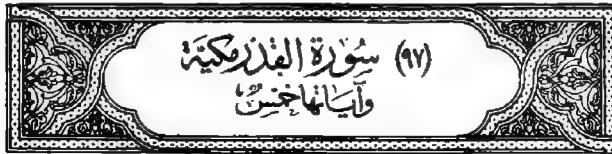 (٩٧) سُورَةُ القَدْرِ مَكِّيَّة
وَآيَاتُهَا خَمْسٌ